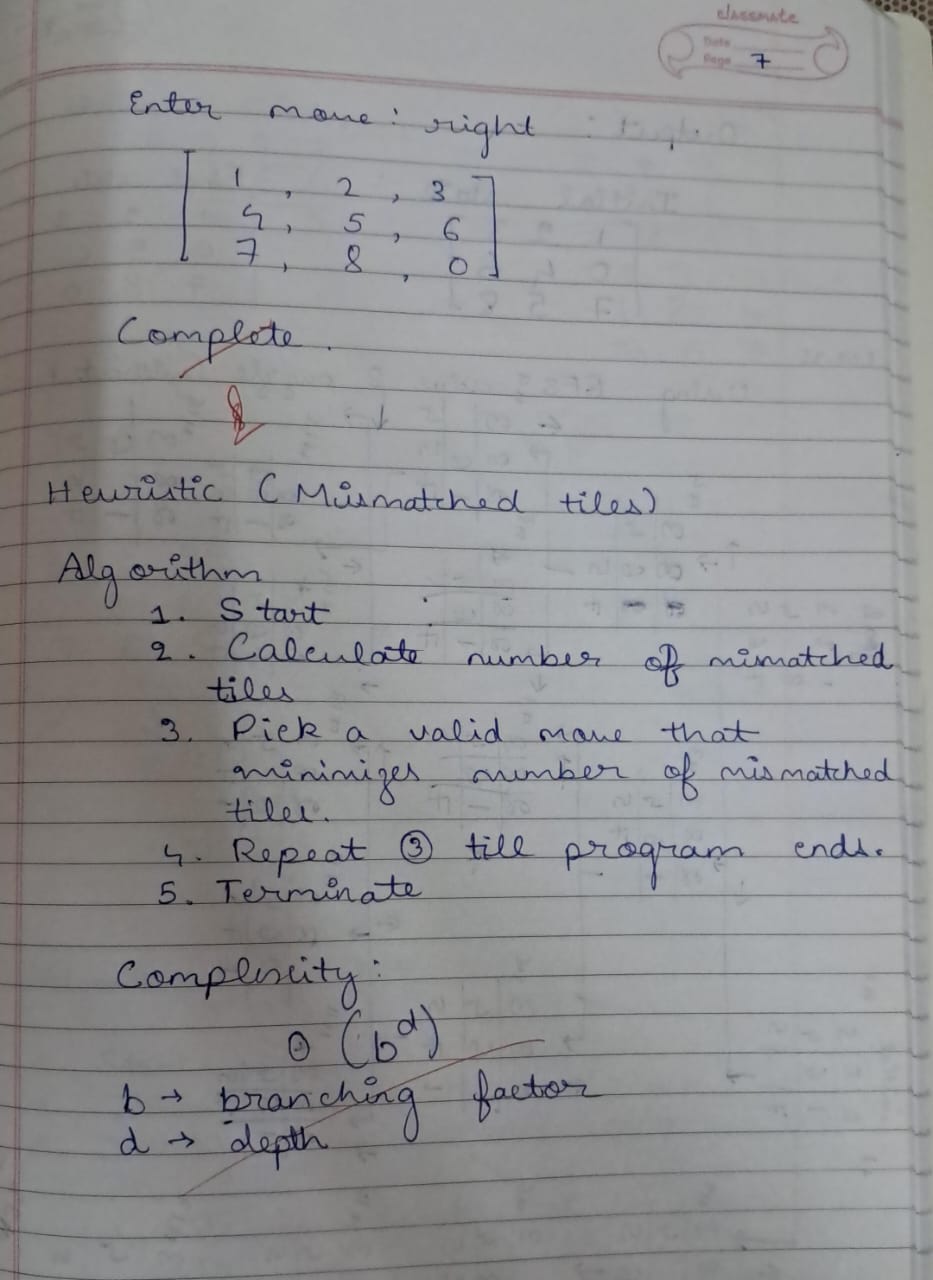 classmate
Date
Page 7
Enter move: right
1 , 2 , 3
4 , 5 , 6
7 , 8 , 0
Complete.
Heuristic (Mismatched tiles)
Algorithm
1. Start
2. Calculate number of mimatched
tiles
3. Pick a valid move that
minimizes number of mismatched
tiles.
4. Repeat ③ till program ends.
5. Terminate
Complexity:
O (b^d)
b → branching factor
d → depth